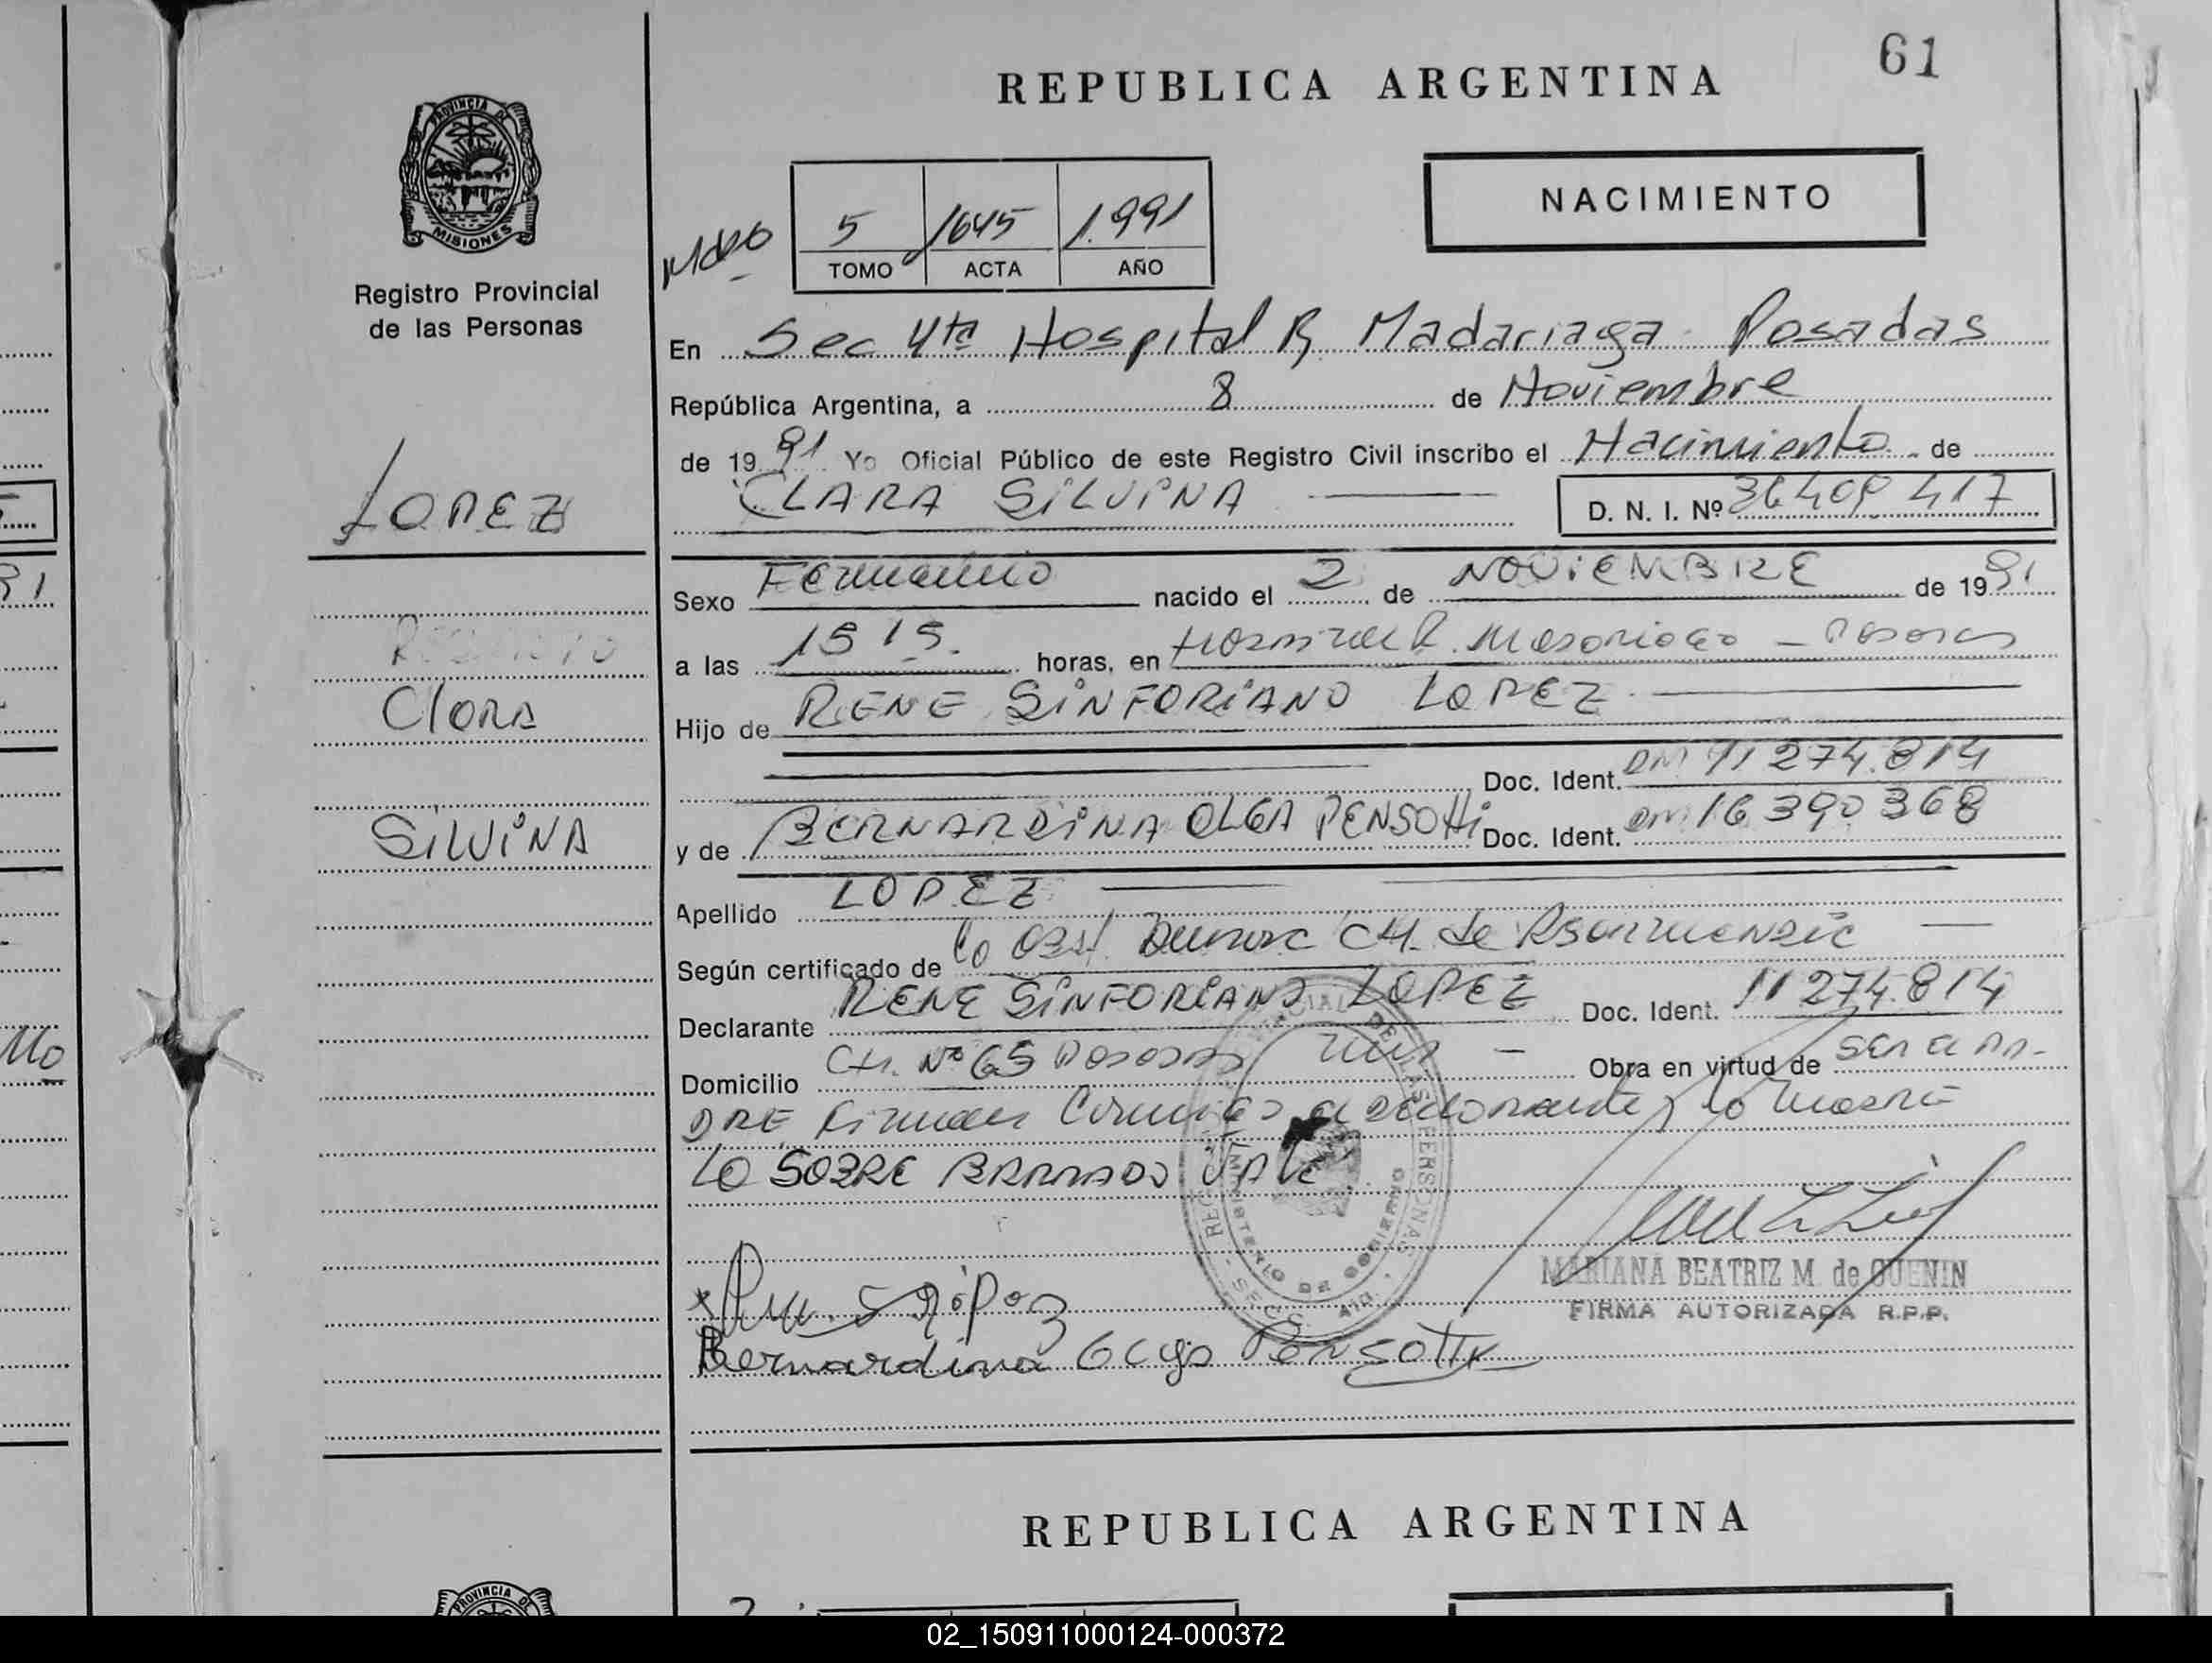 61
REPUBLICA ARGENTINA
PROVINCIA DE
MISIONES
NACIMIENTO
5 1645 1.991
TOMO ACTA AÑO
Registro Provincial
de las Personas
En Sec 4ta Hospital R Madariaga Posadas
República Argentina, a 8 de Noviembre
de 1991 Yo Oficial Público de este Registro Civil inscribo el Nacimiento de
LOPEZ
CLARA SILVINA D. N. I. Nº 36409 417
Sexo Femenino nacido el 2 de NOVIEMBRE de 1991
a las 15 15. horas, en Hospital R. Madariaga - Posadas
Clara
Hijo de RENE SINFORIANO LOPEZ
Doc. Ident. DNI 11 274.814
SILVINA
y de BERNARDINA OLGA PENSOtti Doc. Ident. DNI 16 390 368
Apellido LOPEZ
Según certificado de la Obst CH. de
Declarante RENE SINFORIANO LOPEZ Doc. Ident. 11 274.814
Domicilio CH. Nº 65 Posadas Obra en virtud de
DRE Firman a declarante y la madre
LO SOBRE BARRADO VALE
REGISTRO PROVINCIAL DE LAS PERSONAS
MINISTERIO DE GOBIERNO
MARIANA BEATRIZ M. de GUENIN
FIRMA AUTORIZADA R.P.P.
Bernardina Olga Pensotti
REPUBLICA ARGENTINA
PROVINCIA DE
02_150911000124-000372